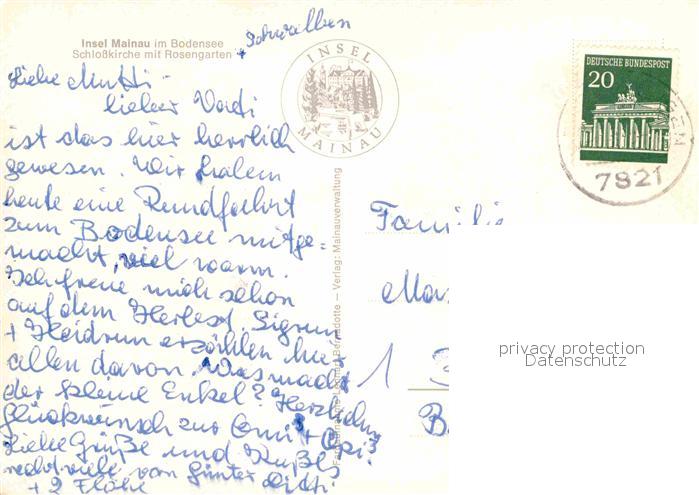 Insel Mainau im Bodensee
Schloßkirche mit Rosengarten
INSEL
MAINAU
Liebe Mutti
lieber Vati
ist das hier herrlich
gewesen. Wir haben
heute eine Rundfahrt
zum Bodensee mitge-
macht, viel warm.
Ich freue mich schon
auf dem Herbst. Sigrun
+ Heidrun erzählen
allen davon. Was macht
der kleine Enkel? Herzlichen
Glückwunsch zur Omi + Opi!
Liebe Grüße und Küße
von Günter
+ 2 Flöhe
Verlag: Mainauverwaltung
DEUTSCHE BUNDESPOST
20
7821
Familie
1
privacy protection
Datenschutz